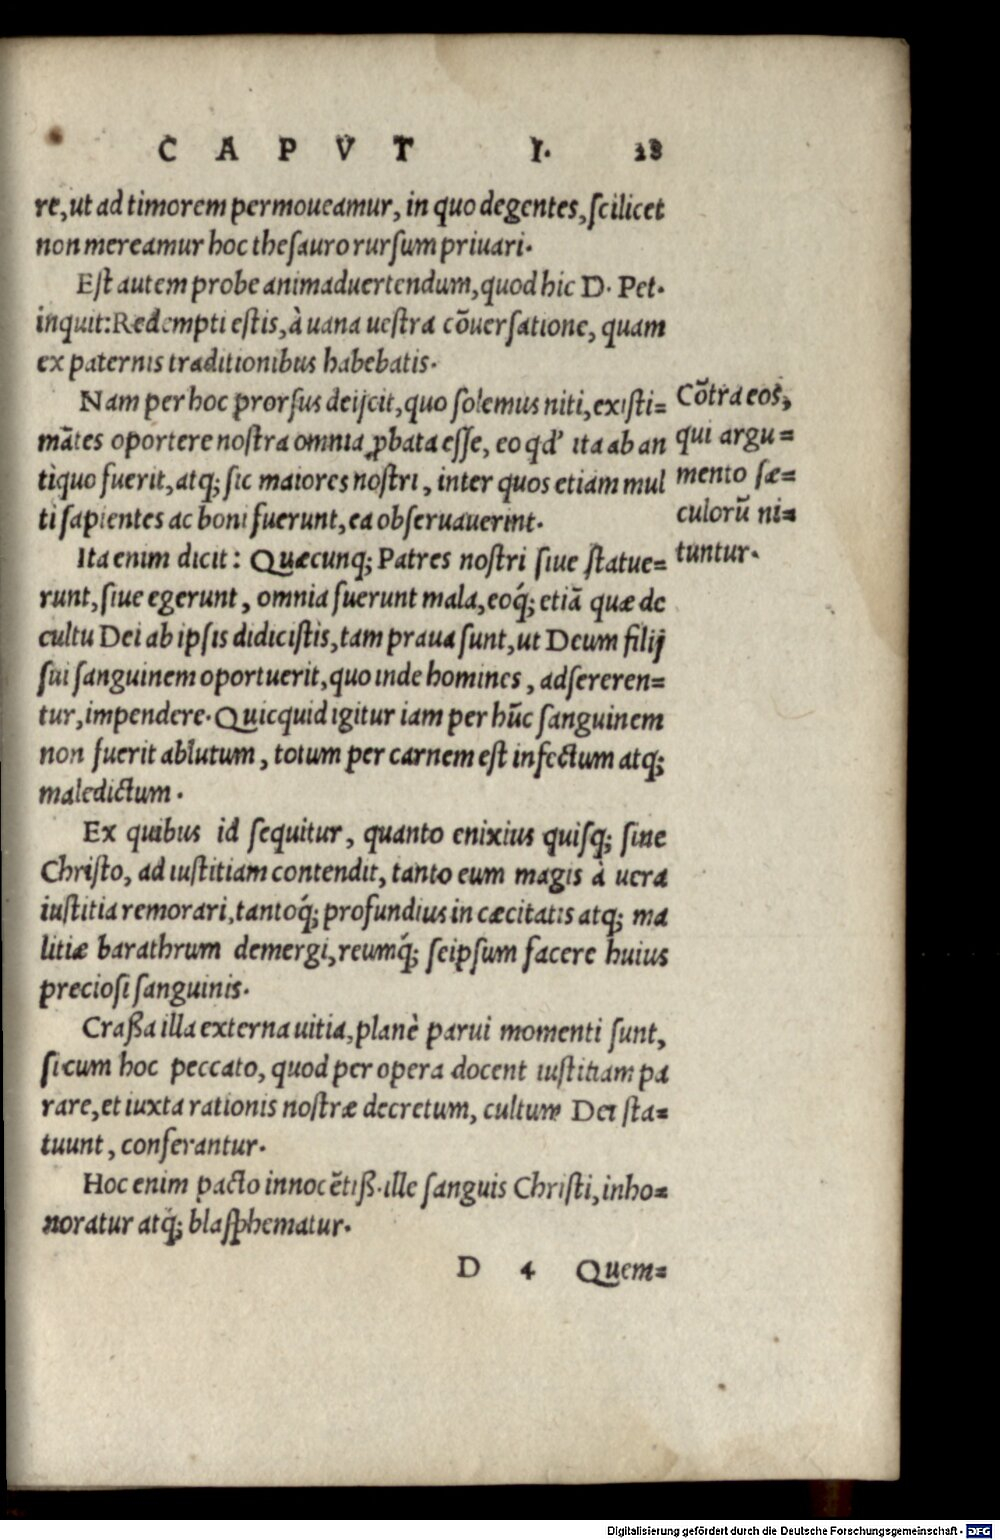 CAPVT I. 28
re, ut ad timorem permoueamur, in quo degentes, scilicet
non mereamur hoc thesauro rursum priuari.
Est autem probe animaduertendum, quod hic D. Pet.
inquit: Redempti estis, à uana uestra cōuersatione, quam
ex paternis traditionibus habebatis.
Nam per hoc prorsus deijcit, quo solemus niti, existi=
mātes oportere nostra omnia ꝓbata esse, eo qd' ita ab an
tiquo fuerit, atq; sic maiores nostri, inter quos etiam mul
ti sapientes ac boni fuerunt, ea obseruauerint.
Cōtra eos,
qui argu=
mento sæ=
culorū ni=
tuntur.
Ita enim dicit: Quæcunq; Patres nostri siue statue=
runt, siue egerunt, omnia fuerunt mala, eoq́; etiā quæ de
cultu Dei ab ipsis didicistis, tam praua sunt, ut Deum filij
sui sanguinem oportuerit, quo inde homines, adsereren=
tur, impendere. Quicquid igitur iam per hūc sanguinem
non fuerit ablutum, totum per carnem est infectum atq;
maledictum.
Ex quibus id sequitur, quanto enixius quisq; sine
Christo, ad iustitiam contendit, tanto eum magis à uera
iustitia remorari, tantoq́; profundius in cæcitatis atq; ma
litiæ barathrum demergi, reumq́; seipsum facere huius
preciosi sanguinis.
Craßa illa externa uitia, planè parui momenti sunt,
si cum hoc peccato, quod per opera docent iustitiam pa
rare, et iuxta rationis nostræ decretum, cultum Dei sta=
tuunt, conferantur.
Hoc enim pacto innocētiß. ille sanguis Christi, inho=
noratur atq́; blasphematur.
D 4 Quem=
Digitalisierung gefördert durch die Deutsche Forschungsgemeinschaft - DFG